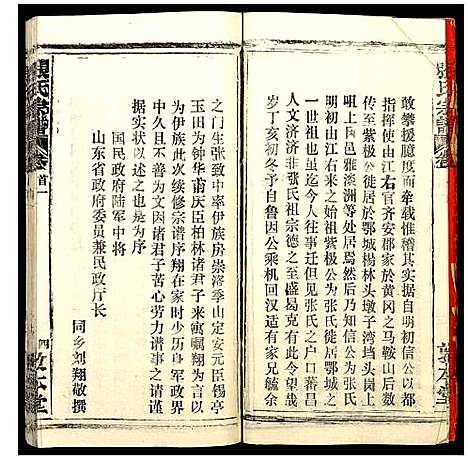 張氏宗譜
敢攀援臆度而牵载惟稽其实据自明初信公以都
指挥使由江右官齐安郡家於黄冈之马鞍山后数
传至紫极公徙居於鄂城杨林头墩子湾垱头岗上
咀上大邑雅淡洲等处居焉然后乃知信公为张氏
一世祖也至今人往事迁但见张氏之户口蕃昌
人文济济非张氏祖宗德之至盛曷克有此今望哉
岁丁亥初冬予自鲁因公乘机回汉适有家兄毓余
之门生张致中率伊族房崇洛季山定安元臣锡亭
玉田为钟华甫庆臣柏林诸君子来寓嘱翔为言
叙於伊族此次续修宗谱序翔在家时少历军政界
中久且不善为文因诸君子苦心劳力谱事之诸谨
据实状以述之也是为序
国民政府陆军中将
山东省政府委员兼民政厅长
同乡刘翔敬撰
張氏宗譜
卷首一
四